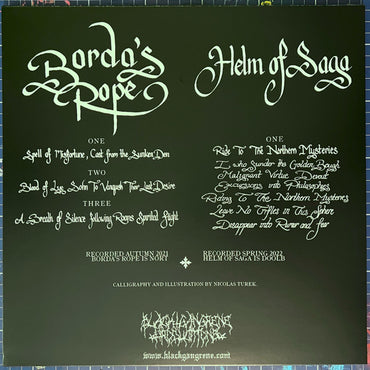 Borda's
Rope
ONE
Spell of Misfortune, Cast from the Sunken Den
TWO
Blood of Lys, Sown To Vanquish Thor, Last Desire
THREE
A Breath of Silence Following Rooms Spirited Flight
RECORDED AUTUMN 2021
BORDA'S ROPE IS NORT
Helm of Saga
ONE
Ride To The Northern Mysteries
I who Sunder the Golden Bough
Malignant Virtue Is Devout
Excursions into Philosophies
Riding To The Northern Mysteries
Leave No Trifles in This Sphere
Disappear into Rumor and fear
RECORDED SPRING 2022
HELM OF SAGA IS DOOLB
CALLIGRAPHY AND ILLUSTRATION BY NICOLAS TUREK.
BLACK GANGRENE
PRODUCTIONS
www.blackgangrene.com